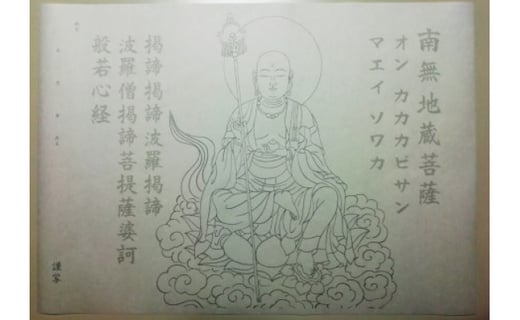 南無地蔵菩薩
オン カカカビサン
マエイ ソワカ
掲諦掲諦波羅掲諦
波羅僧掲諦菩提薩婆訶
般若心経
謹写